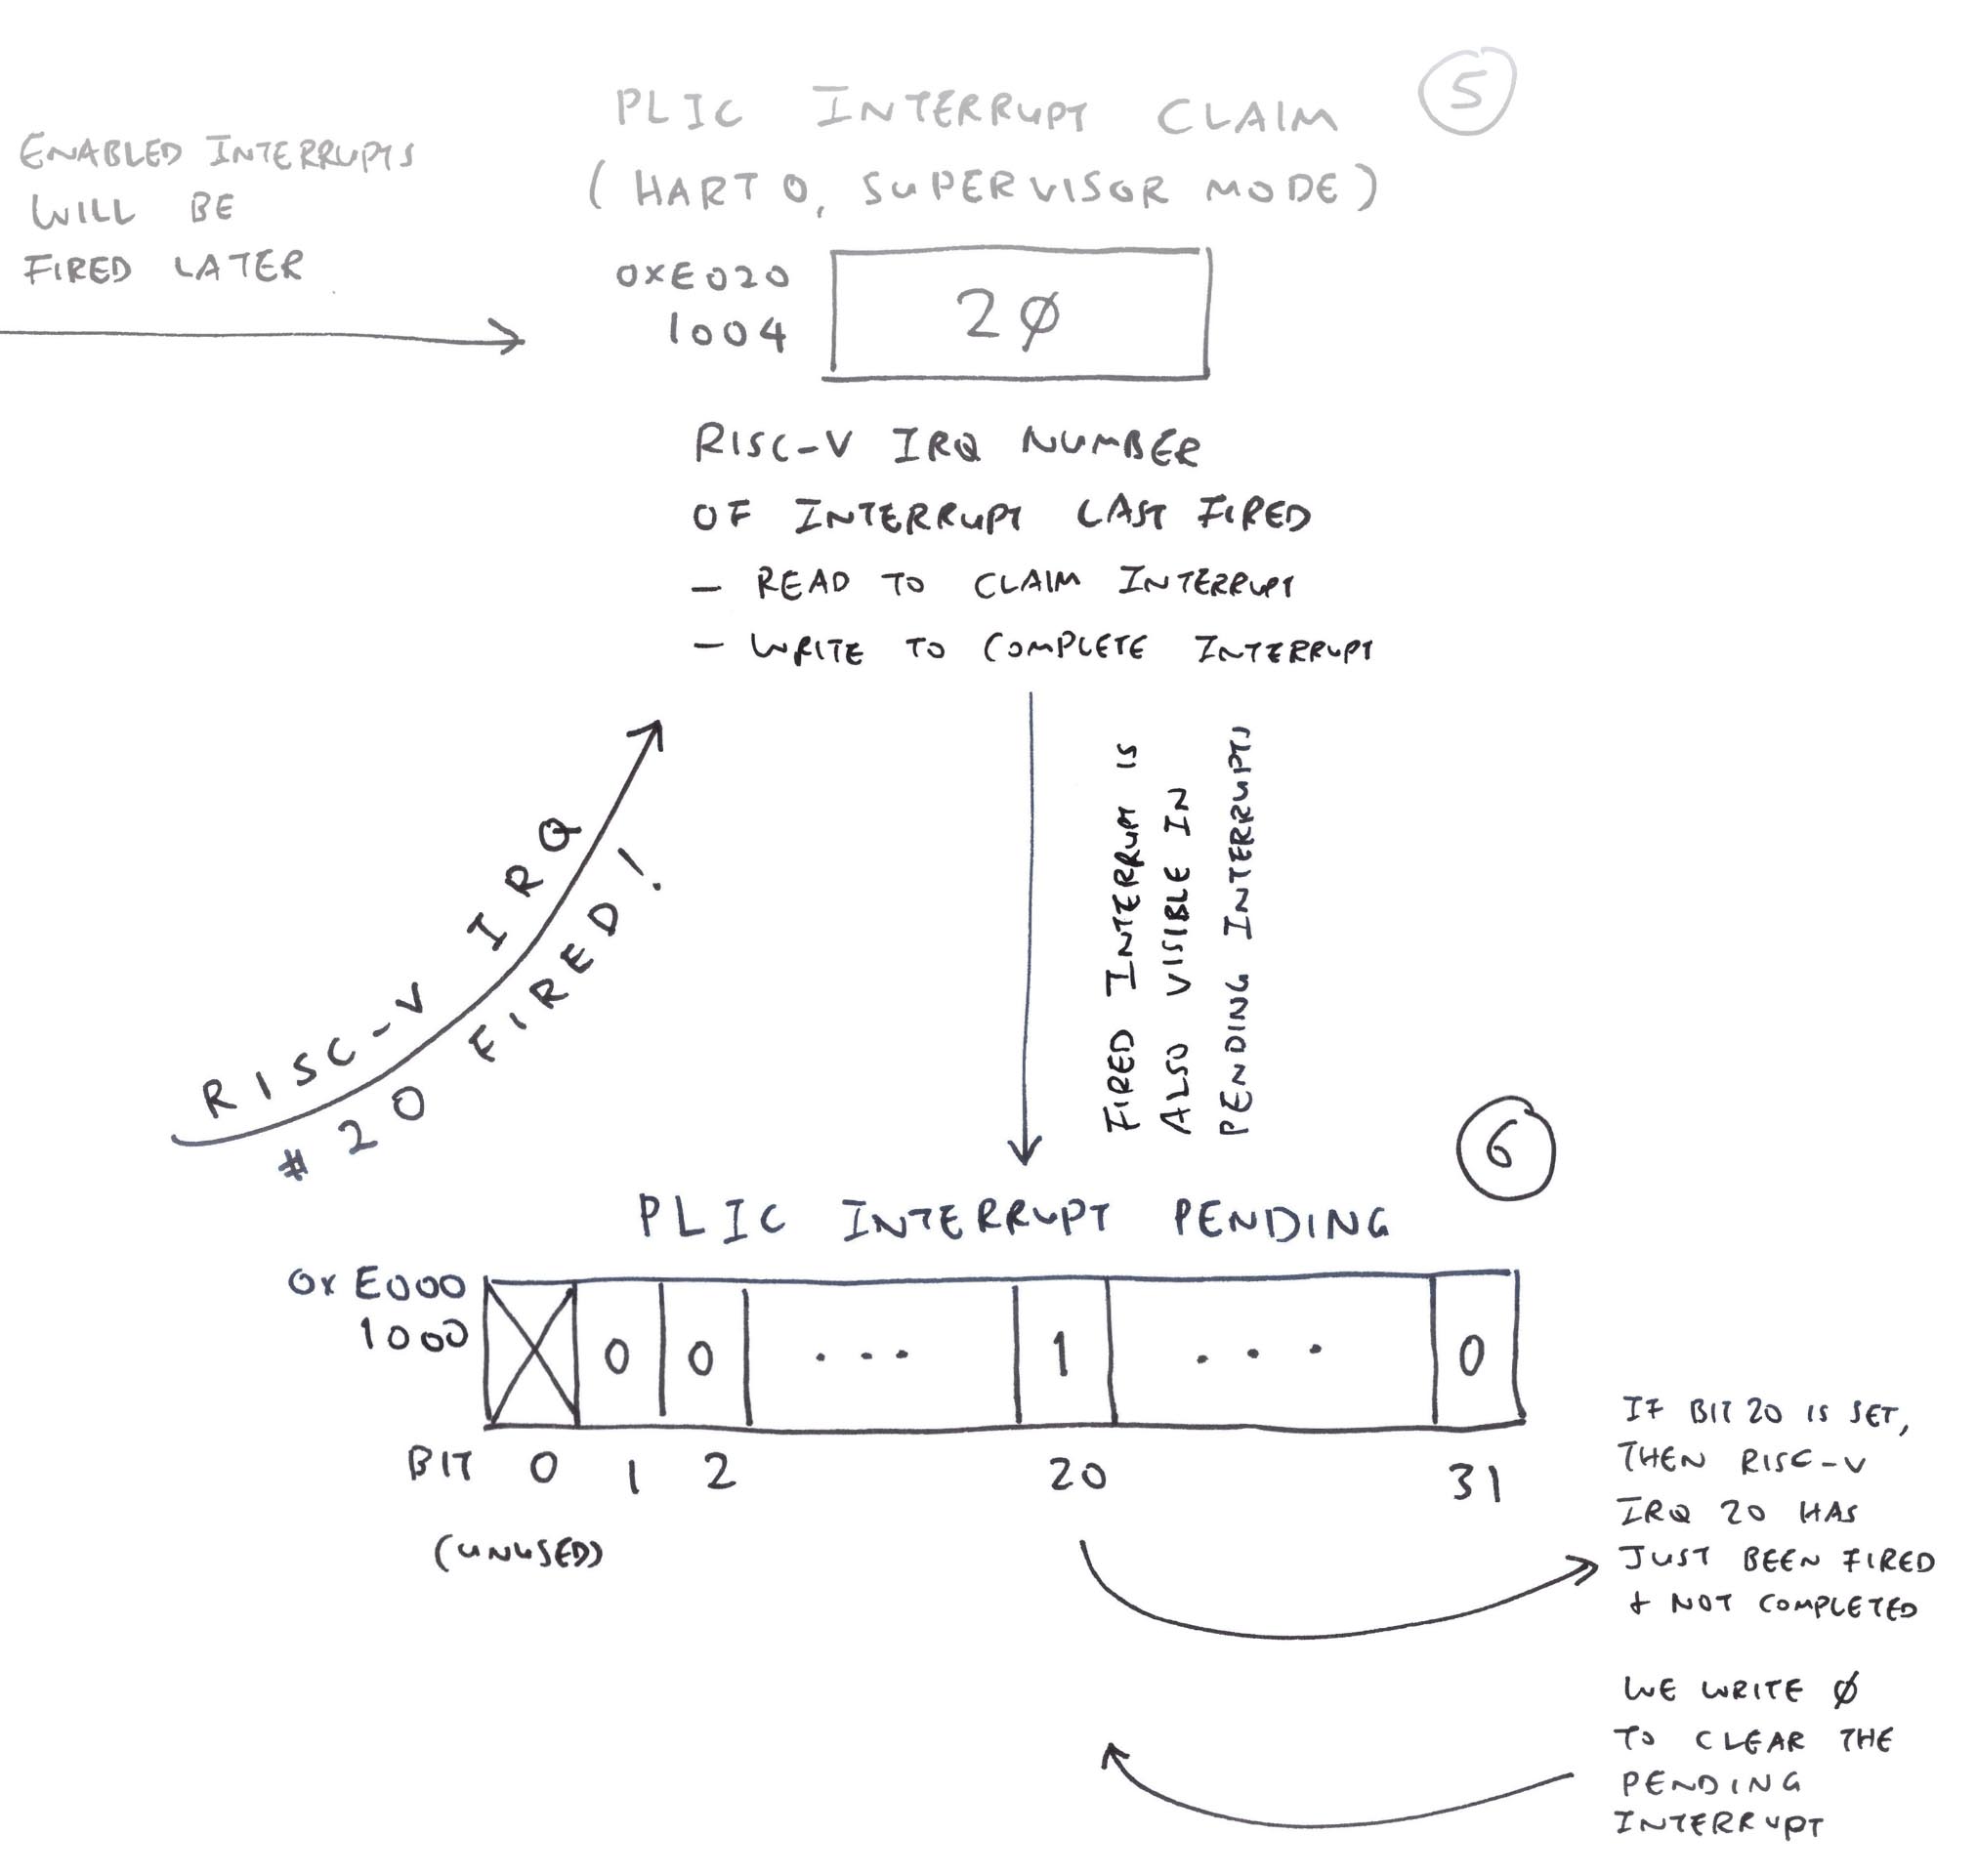 5
PLIC INTERRUPT CLAIM
(HART 0, SUPERVISOR MODE)
ENABLED INTERRUPTS
WILL BE
FIRED LATER
0xE020
1004
2Ø
RISC-V IRQ NUMBER
OF INTERRUPT LAST FIRED
- READ TO CLAIM INTERRUPT
- WRITE TO COMPLETE INTERRUPT
RISC-V IRQ
#20 FIRED!
FIRED INTERRUPT IS
ALSO VISIBLE IN
PENDING INTERRUPTS
6
PLIC INTERRUPT PENDING
0xE000
1000
0 0 ... 1 ... 0
BIT 0 1 2 20 31
(UNUSED)
IF BIT 20 IS SET,
THEN RISC-V
IRQ 20 HAS
JUST BEEN FIRED
+ NOT COMPLETED
WE WRITE Ø
TO CLEAR THE
PENDING
INTERRUPT